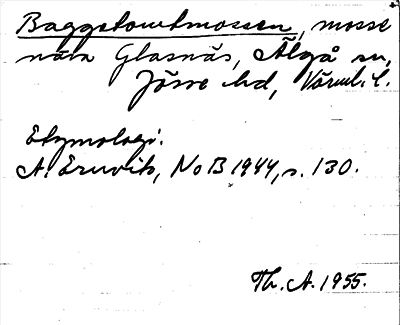 Baggetomtmossen, mosse
nära Glasnäs, Älgå sn,
Jösse hd, Värml. l.
Etymologi:
A. Ernvik, NoB 1944, s. 130.
Th. A. 1955.